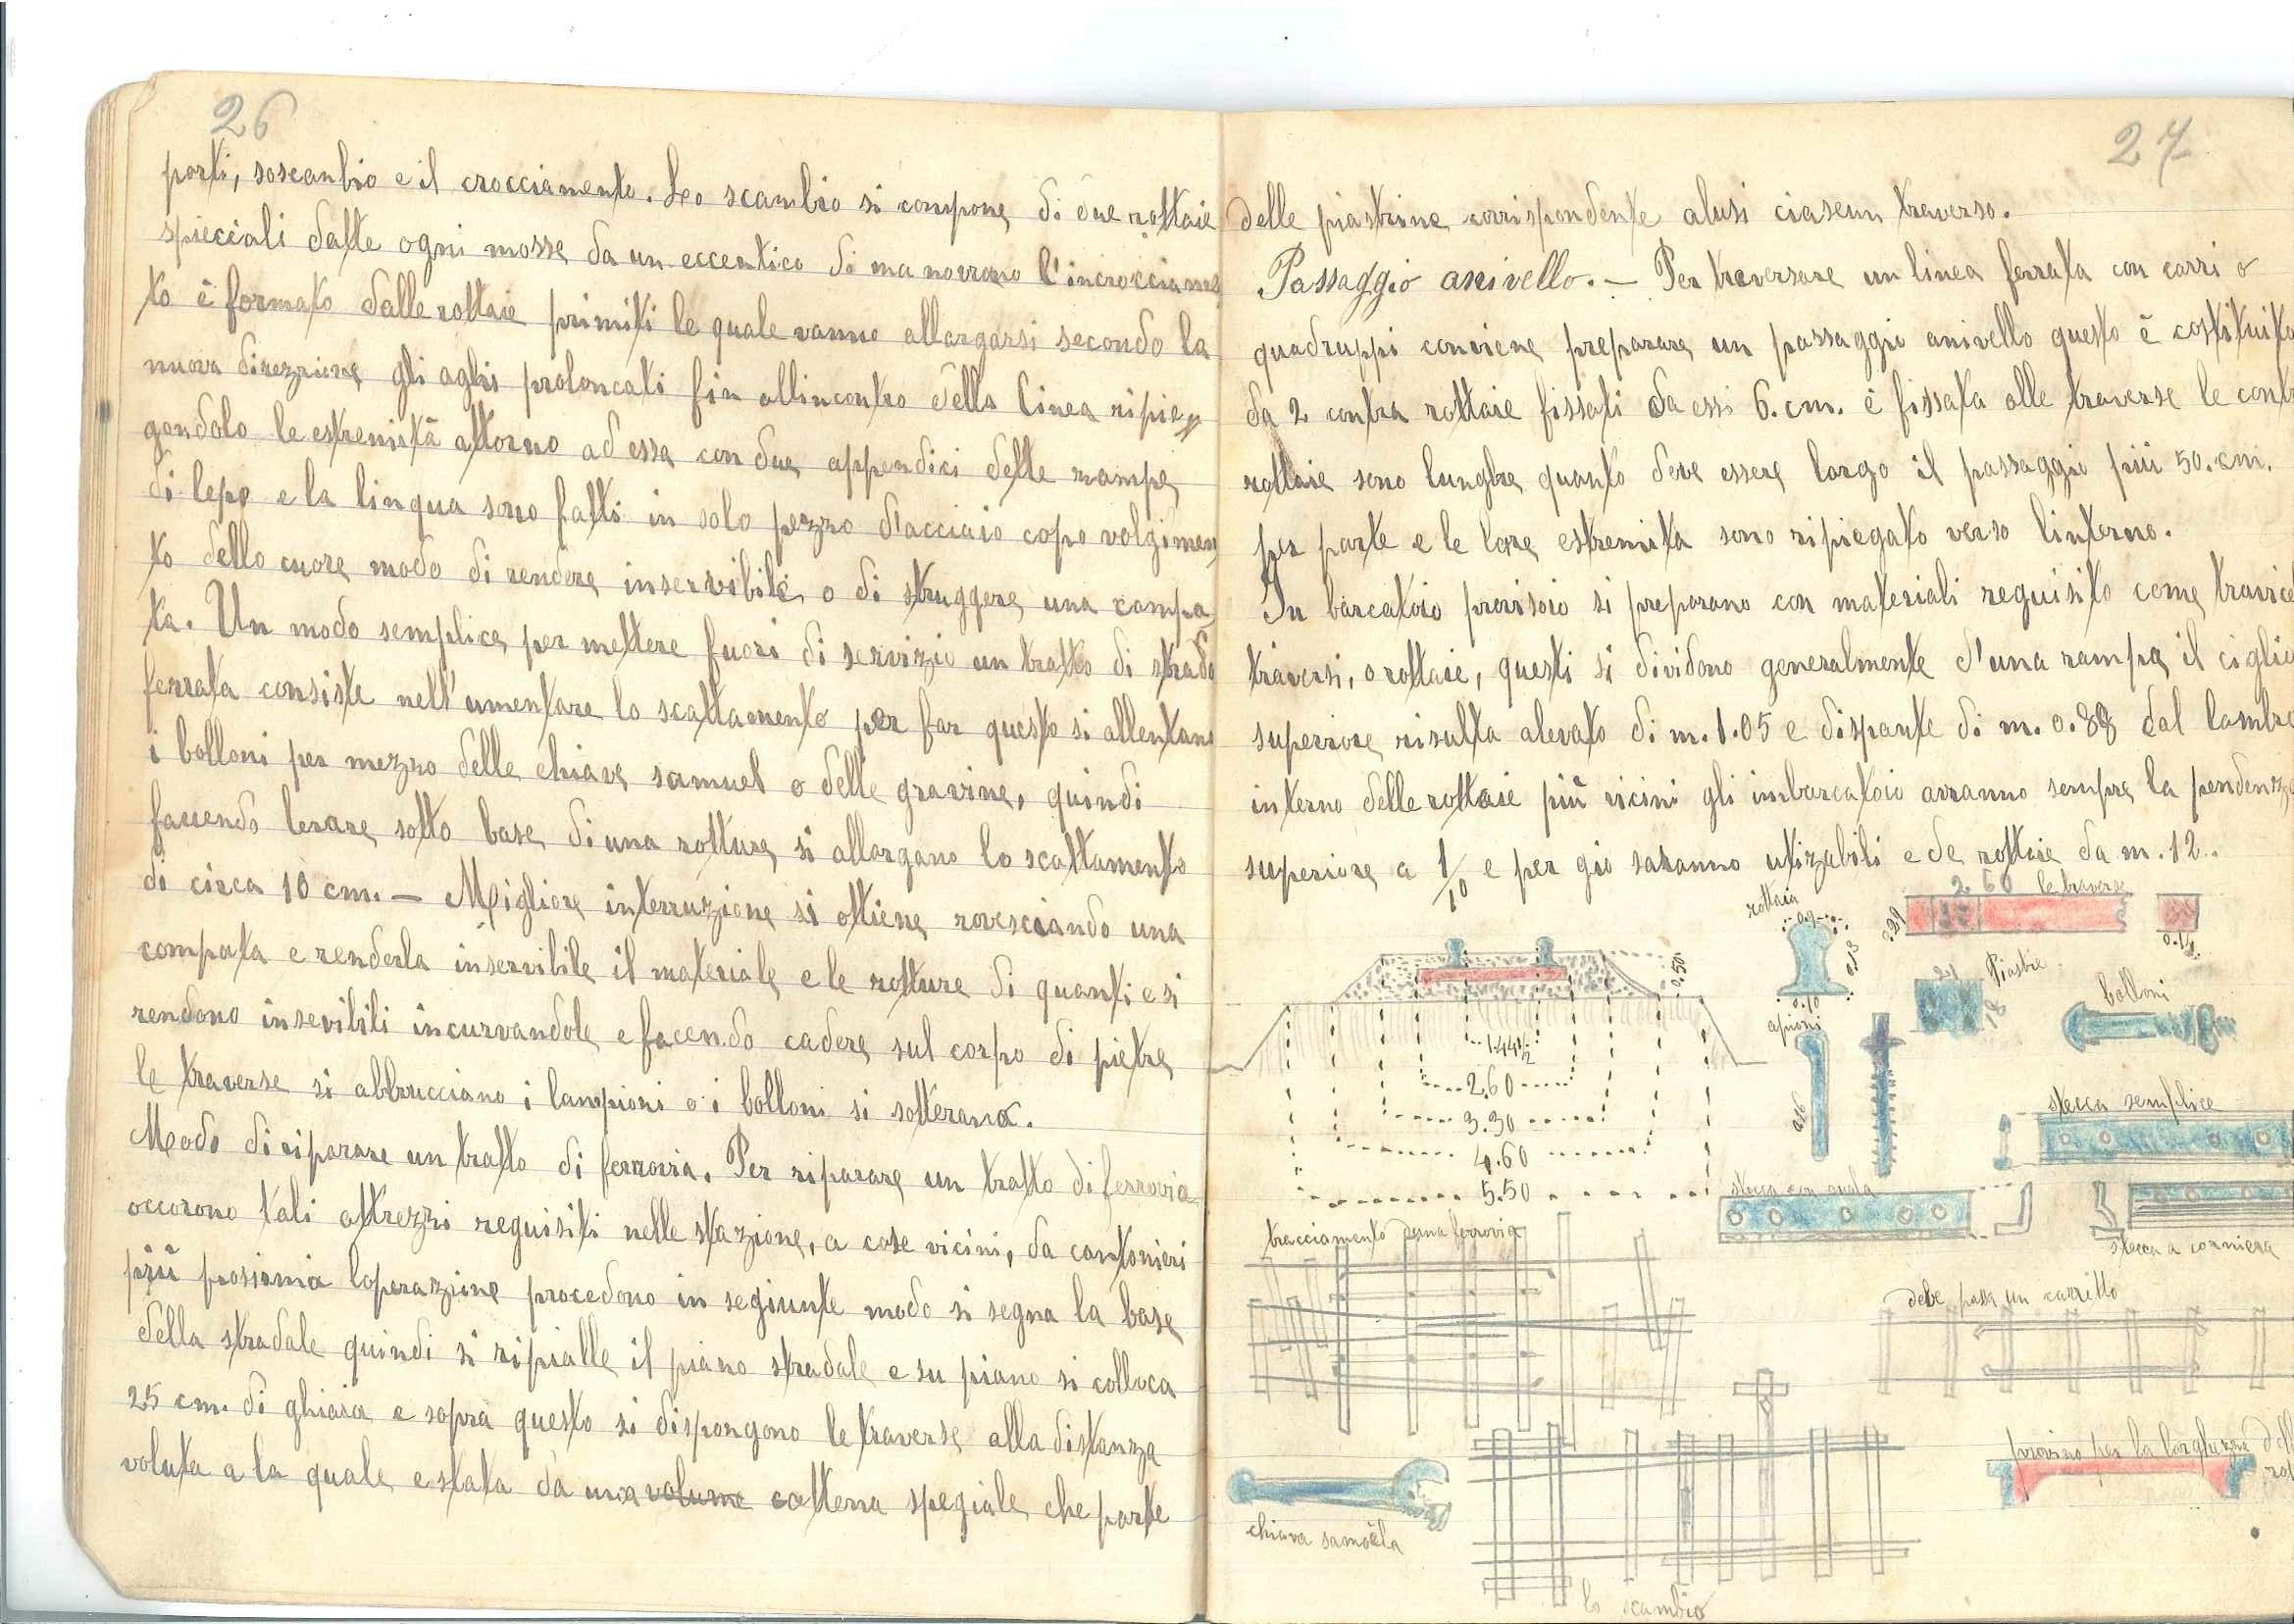 26
porti, soscanbio e il crocciamento. Lo scambio si compone di due rottaie
spicciali datte ogni mosse da un eccentico di manovrano l'incrocciame
to è formato dalle rottaie primiti le quale vanno allargarsi secondo la
nuova direzzione gli aghi proloncati fin allincontro della linea ripie
gandolo le estremità attorno ad essa con due appendici dette rampe
di lepo e la lingua sono fatti in solo pezzo d'acciaio copo volgimen
to dello cuore modo di rendere inservibile o di struggere una campa
ta. Un modo semplice per mettere fuori di servizio un tratto di strada
ferrata consiste nell'umentare lo scattamento per far questo si allentano
i bolloni per mezzo delle chiave samuel o delle gravine, quindi
facendo levare sotto base di una rotture si allargano lo scattamento
di circa 10 cm. — Migliore interruzione si ottiene rovesciando una
compata e renderla inservibile il materiale e le rotture di quanti e si
rendono insevibili incurvandole e facendo cadere sul corpo di pietre
le traverse si abbrucciano i lampioni o i bolloni si sotterano.
Modo di riparare un tratto di ferrovia. Per riparare un tratto di ferrovia
occorono tali attrezzi requisiti nelle stazione, a case vicini, da cantonieri
più prosisma loperazione procedono in segiunte modo si segna la base
della stradale quindi si ripialle il piano stradale e su piano si colloca
25 cm. di ghiaia e sopra questo si dispongono le traverse alla distanza
voluta a la quale e stata da una volume cattena speziale che parte
27
delle piastrine corrispondente alusi ciascun traverso.
Passaggio anivello. — Per traversare un linea ferrata con carri o
quadruppi conviene preparare un passaggio anivello questo è costituito
da 2 contra rottaie fissati da essi 6. cm. è fissata alle traverse le contr
rottaie sono lunghe quanto deve essere largo il passaggio più 50. cm.
per parte e le lore estremita sono ripiegato verso linterno.
In barcatoio provisoio si preparano con materiali requisito come travice
traversi, o rottaie, questi si dividono generalmente d'una rampa il ciglio
superiore risulta alevato di m. 1.05 e dispante di m. 0.88 dal lambo
interno delle rottaie più vicini gli imbarcatoio avranno sempre la pendenza
superiore a 1/10 e per giò saranno utizabili e de rottaie da m. 12.
2.60 le traverse
rottaia
0.29
0.14
0.13
0.10
0.50
Piastre
bolloni
apioni
0.16
1.44½
2.60
3.30
4.60
5.50
stecca semplice
stecca con suola
stecca a corniera
tracciamento d'una ferrovia
debe passa un carrillo
provino per la larghezza dell
chiava samoela
lo scambio